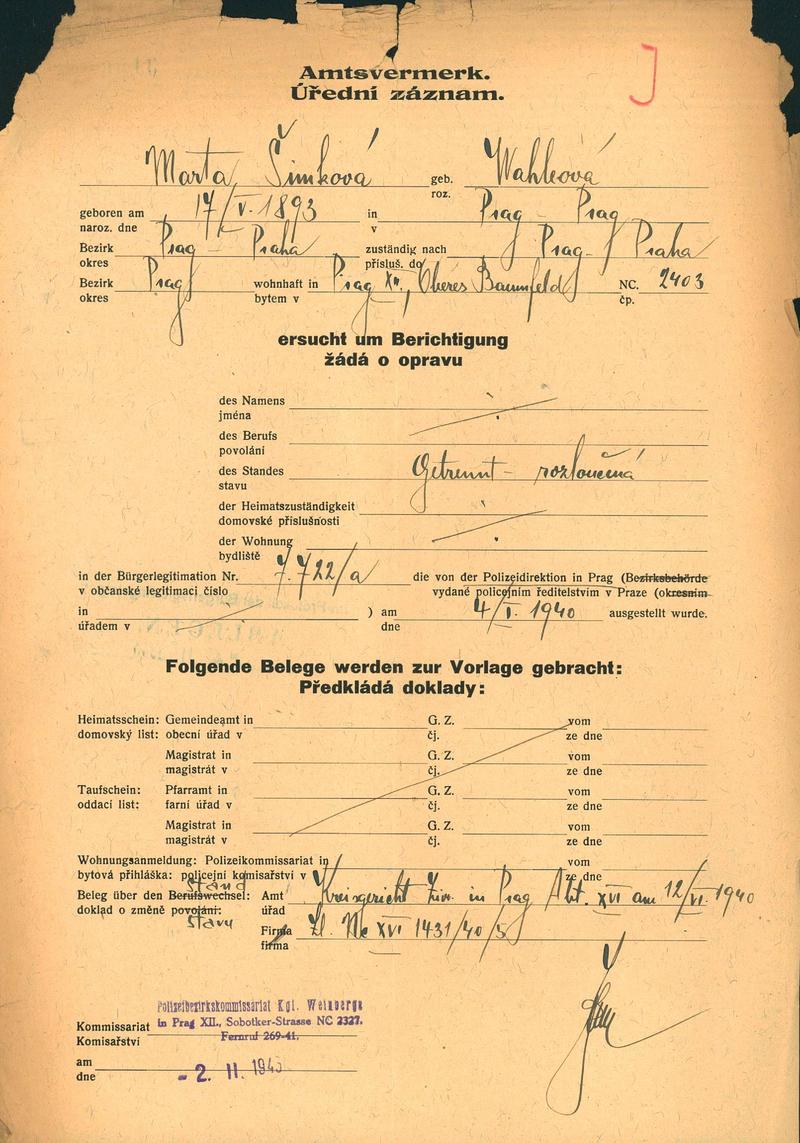 J
Amtsvermerk.
Úřední záznam.
Marta Šimková geb. Wahleová
roz.
geboren am 17/V. 1893 in Prag - Prag
naroz. dne v
Bezirk Prag - Praha zuständig nach Prag - Praha
okres přísluš. do
Bezirk Prag wohnhaft in Prag XII., Oberes Baumfeld NC. 2403
okres bytem v čp.
ersucht um Berichtigung
žádá o opravu
des Namens
jména
des Berufs
povolání
des Standes Getrennt - rozloučená
stavu
der Heimatszuständigkeit
domovské příslušnosti
der Wohnung
bydliště
in der Bürgerlegitimation Nr. 7.722/a die von der Polizeidirektion in Prag (Bezirksbehörde
v občanské legitimaci číslo vydané policejním ředitelstvím v Praze (okresním
in ) am 4/I. 1940 ausgestellt wurde.
úřadem v dne
Folgende Belege werden zur Vorlage gebracht:
Předkládá doklady:
Heimatsschein: Gemeindeamt in G. Z. vom
domovský list: obecní úřad v čj. ze dne
Magistrat in G. Z. vom
magistrát v čj. ze dne
Taufschein: Pfarramt in G. Z. vom
oddací list: farní úřad v čj. ze dne
Magistrat in G. Z. vom
magistrát v čj. ze dne
Wohnungsanmeldung: Polizeikommissariat in vom
bytová přihláška: policejní komisařství v ze dne
Stand
Beleg über den Berufswechsel: Amt Kreisgericht Ziv. in Prag Abt. XVI am 12/VI. 1940
doklad o změně povolání: úřad
stavu
Firma Zl. Nc XVI 1431/40/5
firma
Polizeibezirkskommissariat Kgl. Weinberge
Kommissariat in Prag XII., Sobotker-Strasse NC 2327.
Komisařství Fernruf 269-41.
am
dne - 2. II. 1940